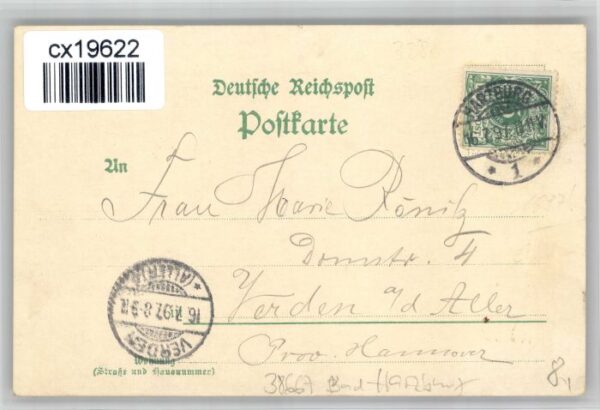 cx19622
Deutsche Reichspost
Postkarte
HARZBURG
1
An
Frau Marie König
Domstr. 4
Verden a/d Aller
Prov. Hannover
(ALLER)
16 97 8-9N
VERDEN
Wohnung
(Straße und Hausnummer)
38667 Bad Harzburg
8,